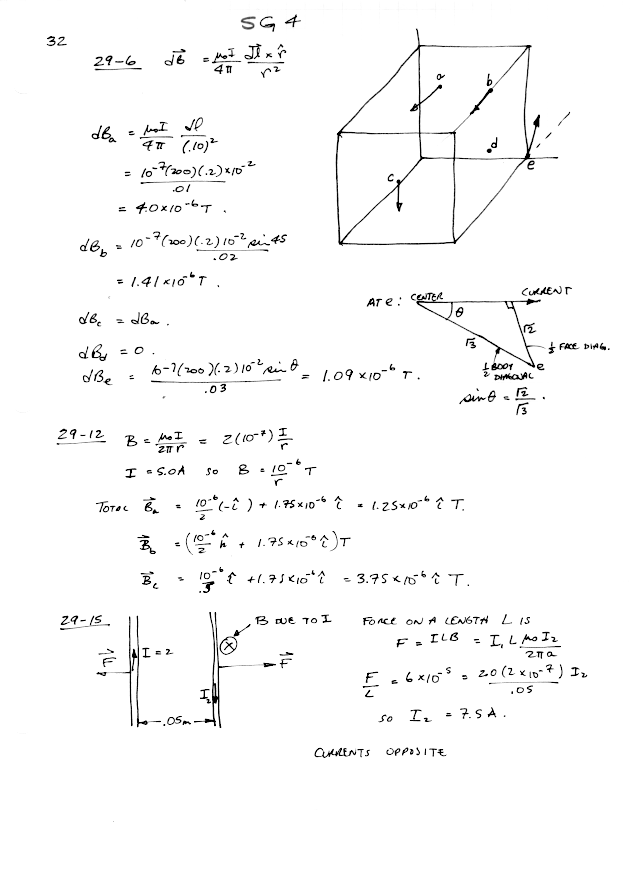 SG 4
32
29-6 dB⃗ = μ₀I/4π dl⃗ × r̂/r²
a
b
c
d
e
dBₐ = μ₀I/4π dl/(.10)²
= 10⁻⁷(200)(.2)×10⁻²/.01
= 4.0×10⁻⁶ T.
dB_b = 10⁻⁷(200)(.2)10⁻² sin 45/.02
= 1.41×10⁻⁶ T.
dB_c = dBₐ.
dB_d = 0.
dB_e = 10⁻⁷(200)(.2)10⁻² sin θ/.03 = 1.09×10⁻⁶ T.
AT e: CENTER CURRENT
θ
√2
√3
½ FACE DIAG.
½ BODY DIAGONAL
e
sin θ = √2/√3.
29-12 B = μ₀I/2πr = 2(10⁻⁷) I/r
I = 5.0A so B = 10⁻⁶/r T
TOTAL B⃗ₐ = 10⁻⁶/2 (-î) + 1.75×10⁻⁶ î = 1.25×10⁻⁶ î T.
B⃗_b = (10⁻⁶/2 k̂ + 1.75×10⁻⁶ î)T
B⃗_c = 10⁻⁶/.5 î + 1.75×10⁻⁶ î = 3.75×10⁻⁶ î T.
29-15 B DUE TO I
F⃗ I = 2 F⃗
I₂
.05m
FORCE ON A LENGTH L IS
F = ILB = I, L μ₀I₂/2πa
F/L = 6×10⁻⁵ = 2.0(2×10⁻⁷)/.05 I₂
so I₂ = 7.5A.
CURRENTS OPPOSITE